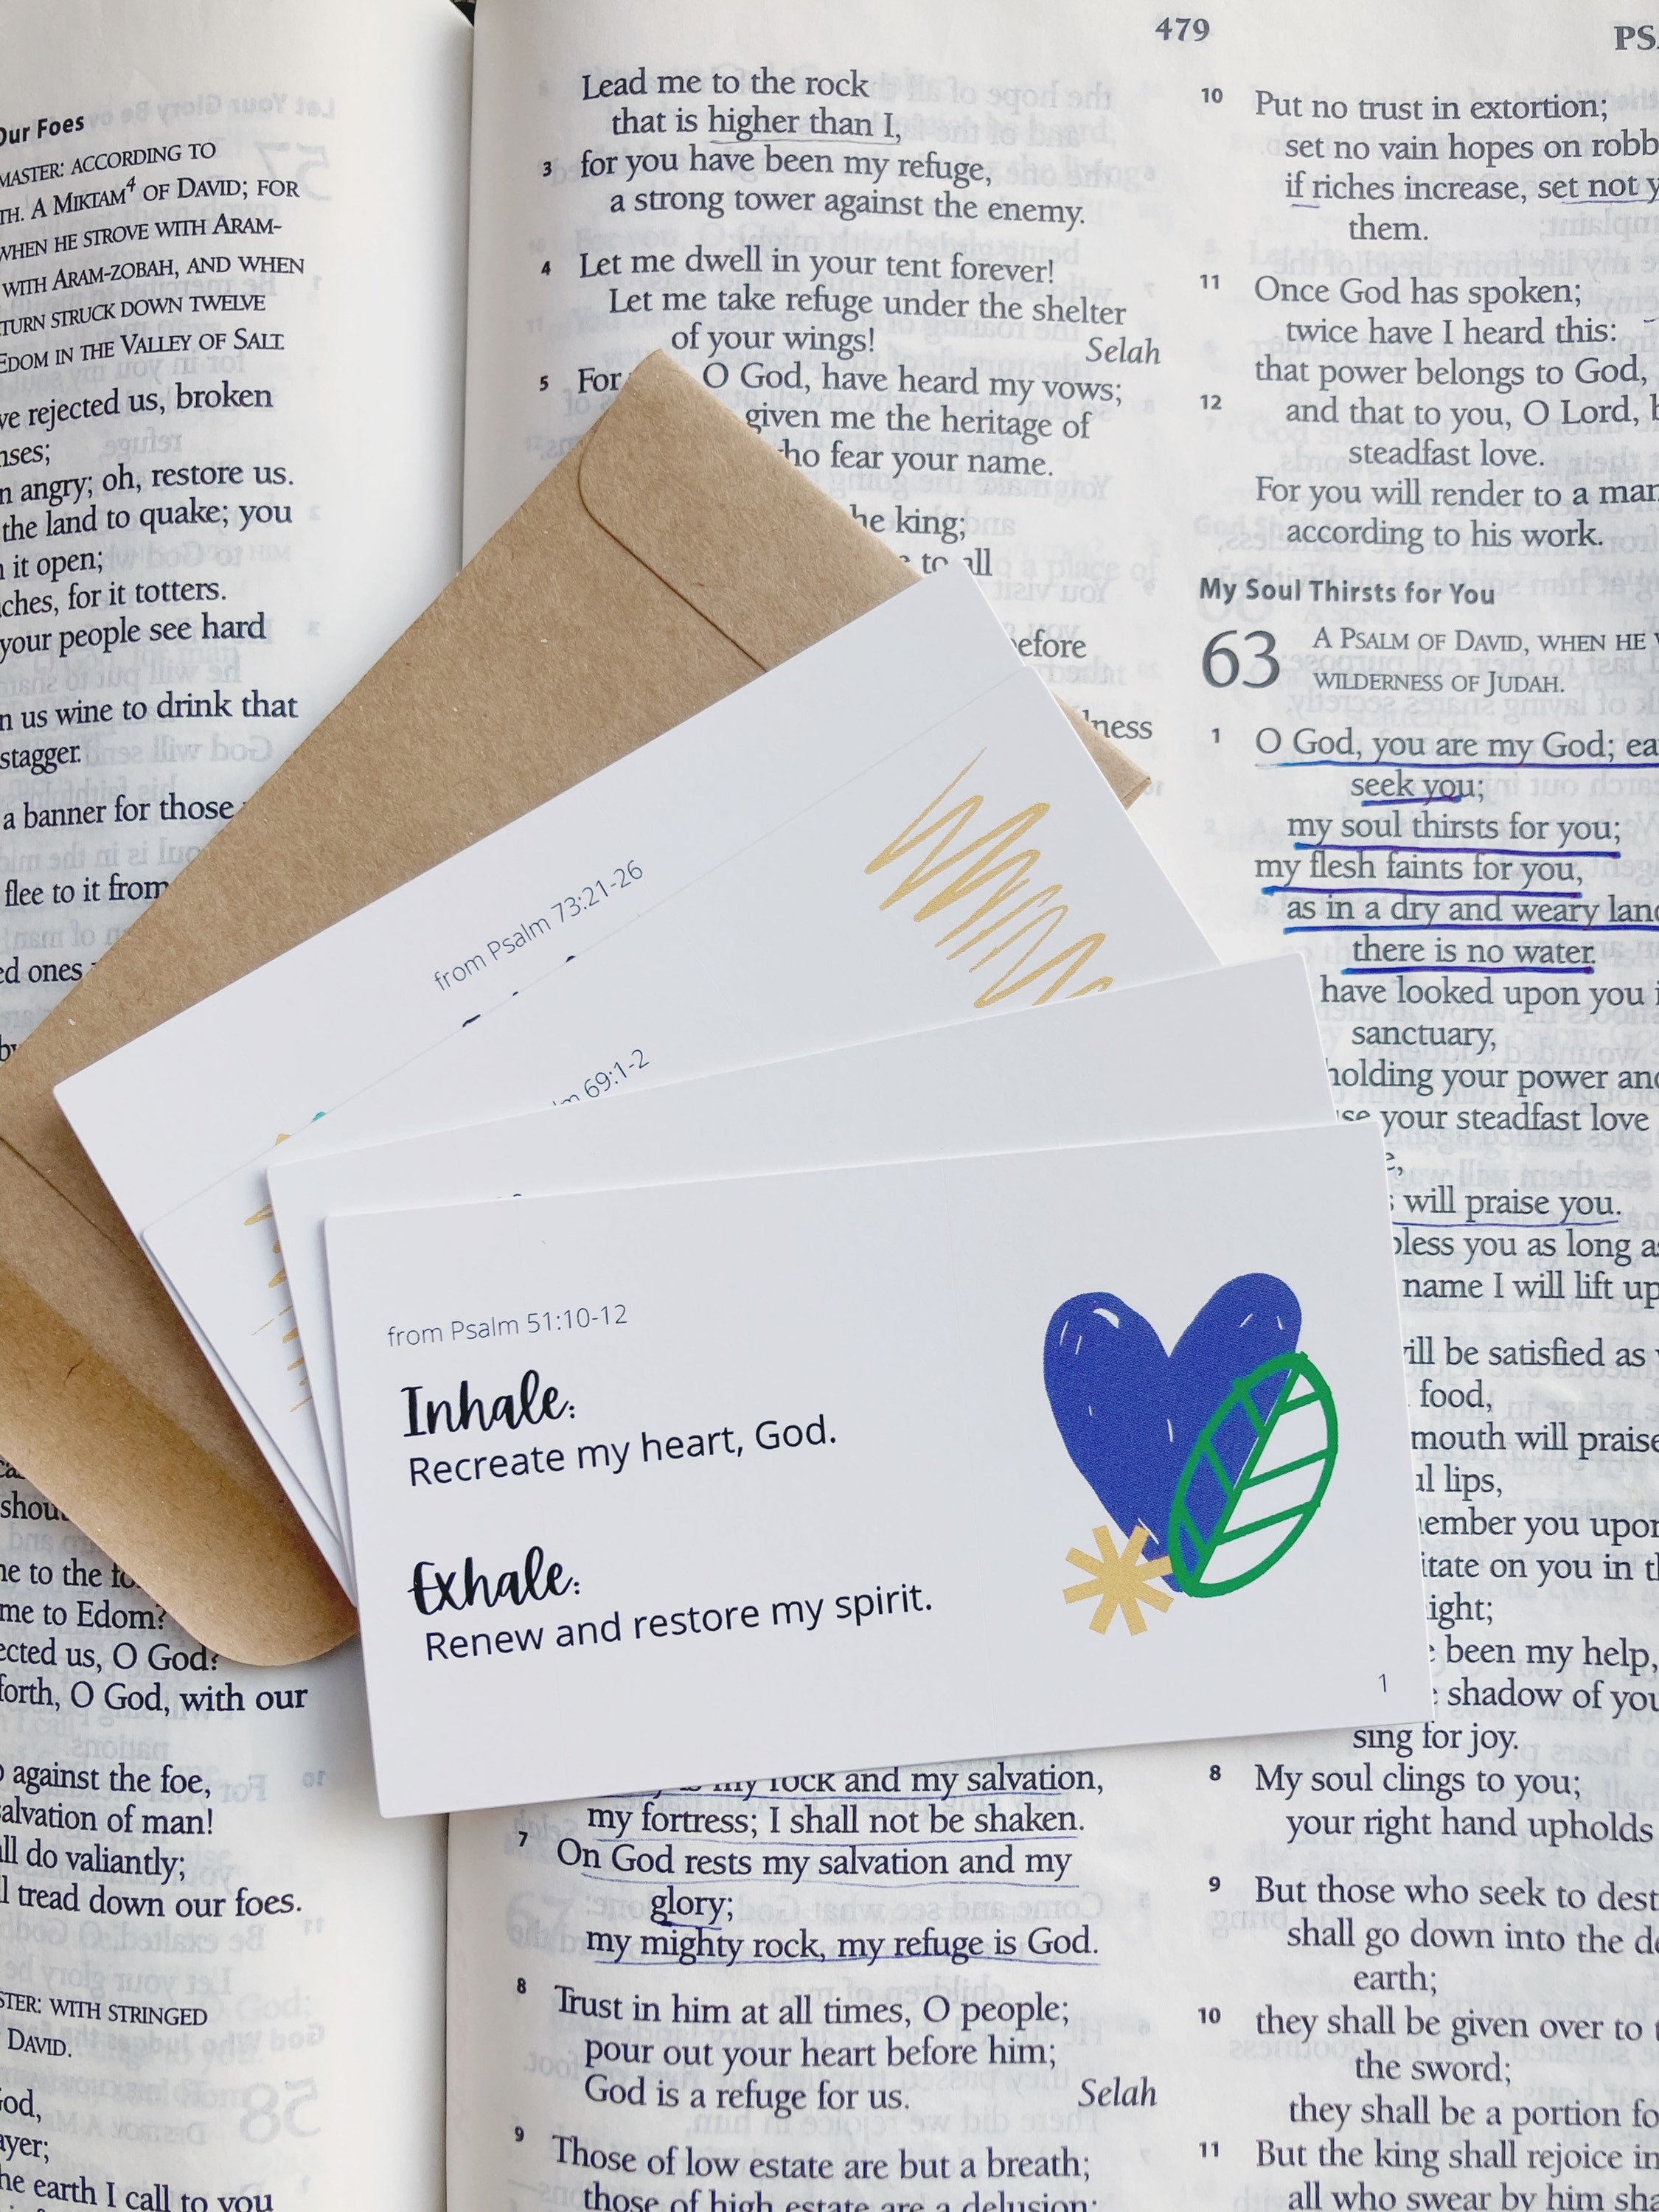 Our Foes
MASTER: ACCORDING TO
TH. A MIKTAM4 OF DAVID; FOR
WHEN HE STROVE WITH ARAM-
WITH ARAM-ZOBAH, AND WHEN
TURN STRUCK DOWN TWELVE
EDOM IN THE VALLEY OF SALT.
rejected us, broken
angry; oh, restore us.
the land to quake; you
it open;
for it totters.
your people see hard
us wine to drink that
stagger.
a banner for those
flee to it from
ones
to the
me to Edom?
us, O God?
forth, O God, with our
against the foe,
salvation of man!
do valiantly;
tread down our foes.
WITH STRINGED
DAVID.
earth I call to you
479
Lead me to the rock
that is higher than I,
3 for you have been my refuge,
a strong tower against the enemy.
4 Let me dwell in your tent forever!
Let me take refuge under the shelter
of your wings! Selah
5 For O God, have heard my vows;
given me the heritage of
who fear your name.
king;
to all
from Psalm 73:21-26
69:1-2
from Psalm 51:10-12
Inhale:
Recreate my heart, God.
Exhale:
Renew and restore my spirit.
1
my rock and my salvation,
my fortress; I shall not be shaken.
7 On God rests my salvation and my
glory;
my mighty rock, my refuge is God.
8 Trust in him at all times, O people;
pour out your heart before him;
God is a refuge for us. Selah
9 Those of low estate are but a breath;
those of high estate are a delusion;
10 Put no trust in extortion;
set no vain hopes on
if riches increase, set not
them.
11 Once God has spoken;
twice have I heard this:
that power belongs to God,
12 and that to you, O Lord,
steadfast love.
For you will render to a man
according to his work.
My Soul Thirsts for You
63 A PSALM OF DAVID, WHEN HE
WILDERNESS OF JUDAH.
1 O God, you are my God;
seek you;
my soul thirsts for you;
my flesh faints for you,
as in a dry and weary land
there is no water.
have looked upon you
sanctuary,
your power and
your steadfast love
will praise you.
you as long as
name I will lift up
will be satisfied as
food,
mouth will praise
lips,
you upon
on you in
been my help,
shadow of
sing for joy.
8 My soul clings to you;
your right hand upholds
9 But those who seek to
shall go down into the
earth;
10 they shall be given over to
the sword;
they shall be a portion
11 But the king shall rejoice in
all who swear by him